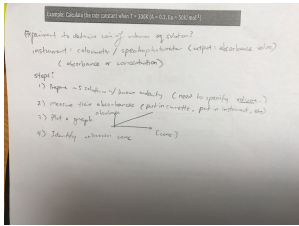 Example: Calculate the rate constant when T = 300K (A = 0.2, Ea = 50kJ mol⁻¹)
Experiment to determine conc of unknown eq. solution?
instrument: colorimeter / spectrophotometer (output: absorbance value)
(absorbance ∝ concentration)
steps:
1) Prepare ~5 solution w/ known molarity (need to specify volume.)
2) measure their absorbances (put in cuvette, put in instrument,
3) Plot a graph absorbance
(conc)
4) Identify unknown conc